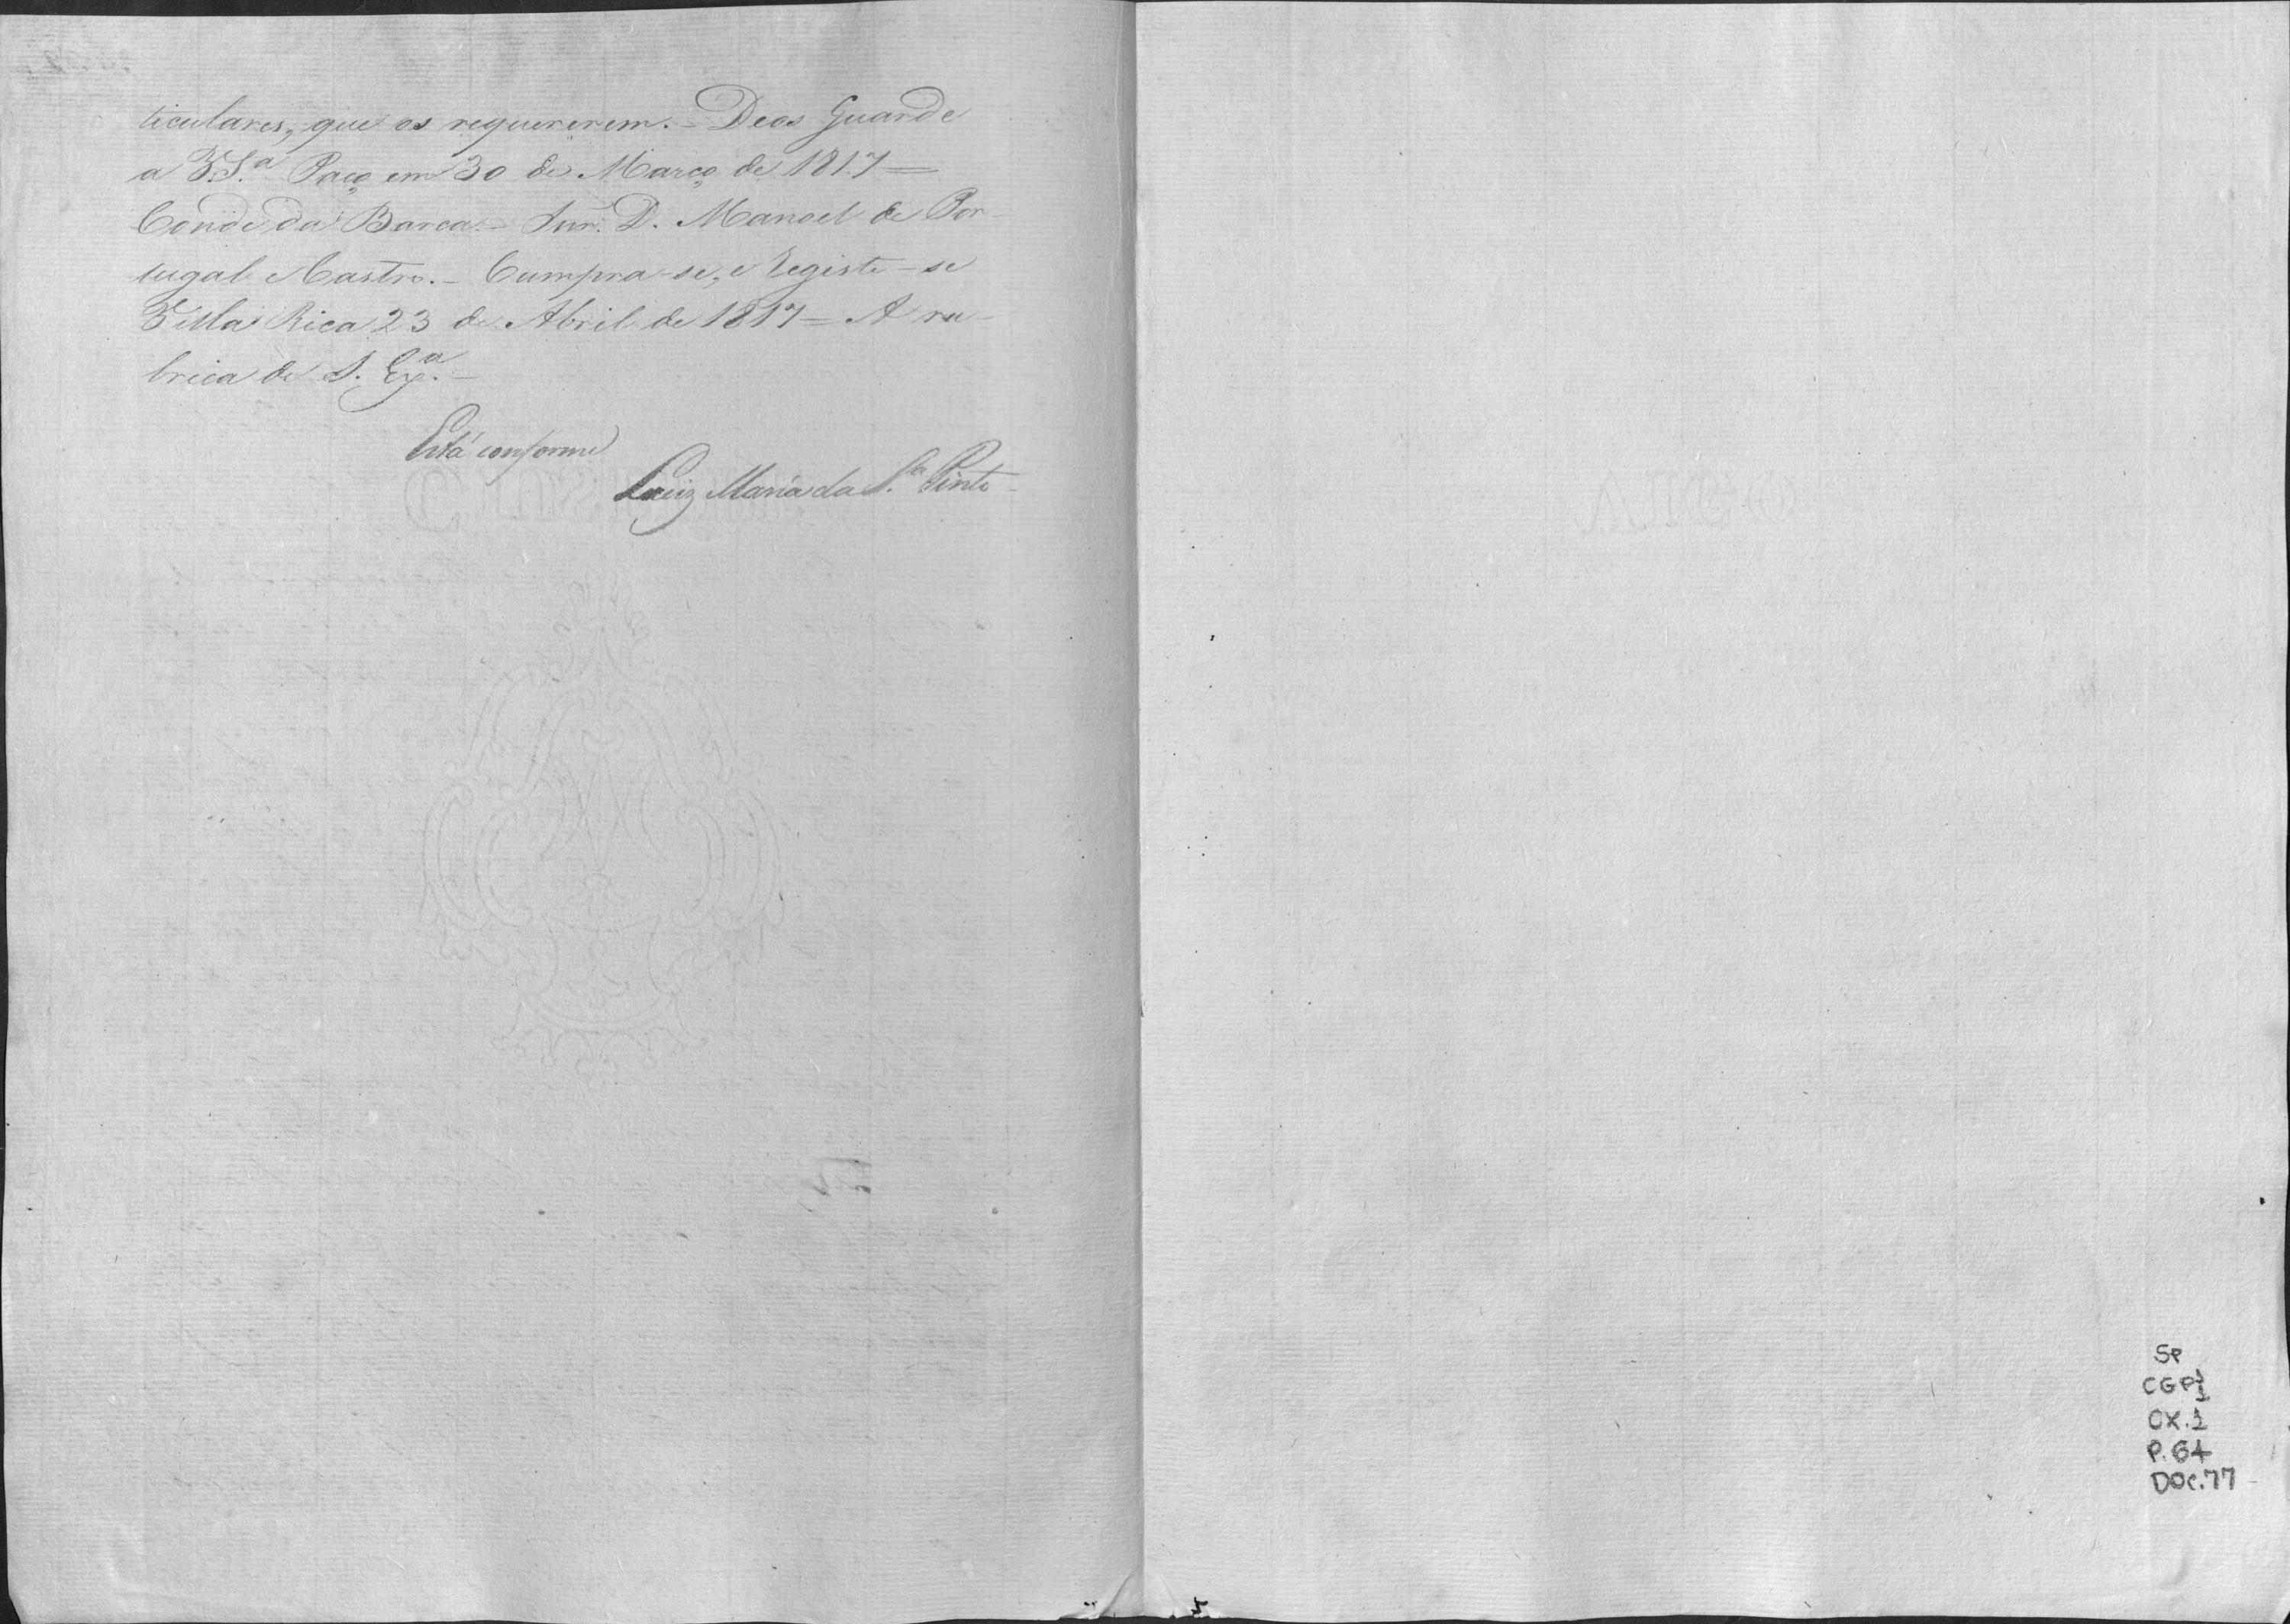 ticulares, que os requererem. - Deos Guarde
a V.S.ª Paço em 30 de Março de 1817 =
Conde da Barca - Snr. D. Manoel de Por-
tugal e Castro. - Cumpra-se, e Registe-se
Villa Rica 23 de Abril de 1817 = A ru-
brica de S. Ex.ª -
Está conforme
Luiz Maria da S.ª Pinto
SP
CGP1
CX.1
P.64
DOC.77